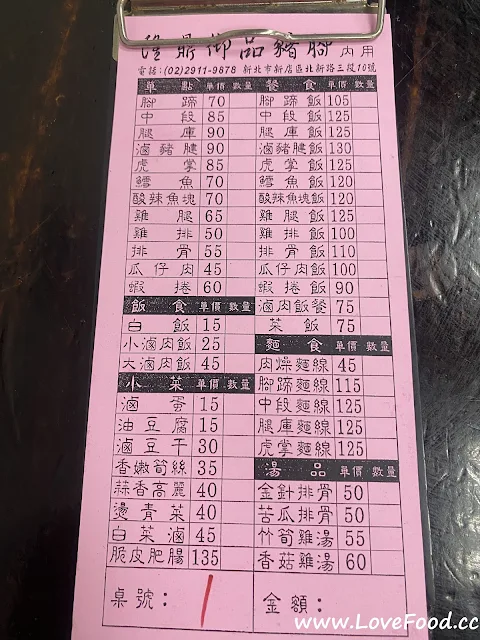 隆鼎御品豬腳 內用
電話:(02)2911-9878 新北市新店區北新路三段10號
單點 單價 數量
腳蹄 70
中段 85
腿庫 90
滷豬腱 90
虎掌 85
鱈魚 70
酸辣魚塊 70
雞腿 65
雞排 50
排骨 55
瓜仔肉 45
蝦捲 60
飯食 單價 數量
白飯 15
小滷肉飯 25
大滷肉飯 45
小菜 單價 數量
滷蛋 15
油豆腐 15
滷豆干 30
香嫩筍絲 35
蒜香高麗 40
燙青菜 40
白菜滷 45
脆皮肥腸 135
桌號：1
餐食 單價 數量
腳蹄飯 105
中段飯 125
腿庫飯 125
滷豬腱飯 130
虎掌飯 125
鱈魚飯 120
酸辣魚塊飯 120
雞腿飯 125
雞排飯 100
排骨飯 110
瓜仔肉飯 100
蝦捲飯 90
滷肉飯餐 75
菜飯 75
麵食 單價 數量
肉燥麵線 45
腳蹄麵線 115
中段麵線 125
腿庫麵線 125
虎掌麵線 125
湯品 單價 數量
金針排骨 50
苦瓜排骨 50
竹筍雞湯 55
香菇雞湯 60
金額：
www.LoveFood.cc